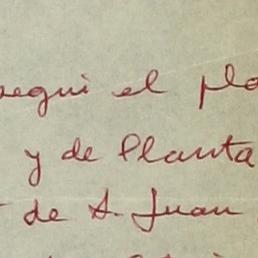 segui el pla
y de Planta
de S. Juan